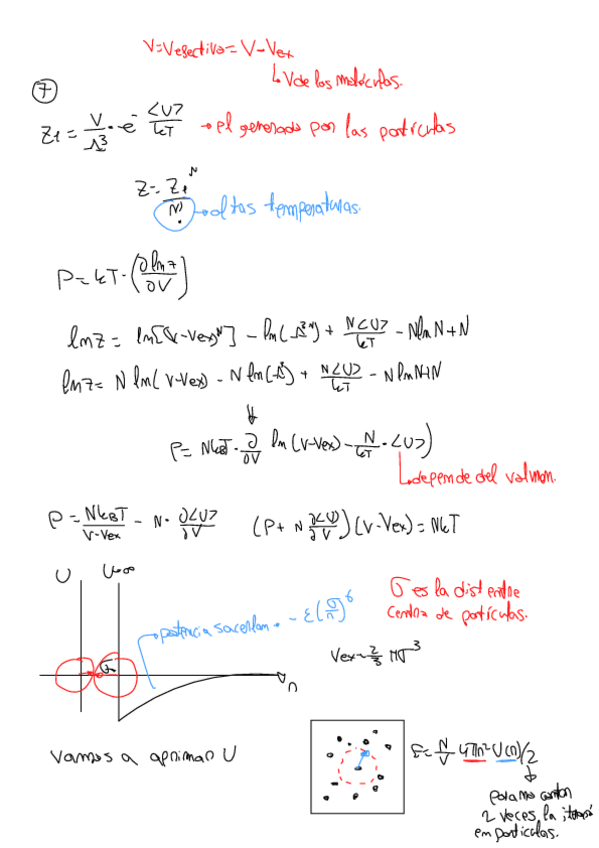 V=Vefectivo= V-Vex
↳ V de las moléculas.
⑦
Z₁ = V/Λ³ · e^-<U>/kT → el generado por las partículas
Z = Z₁^N/N! → altas temperaturas.
P = kT · (∂lnZ/∂V)
lnZ = ln[(V-Vex)^N] - ln(Λ^3N) + N<U>/kT - NlnN+N
lnZ= N ln(V-Vex) - N ln(Λ³) + N<U>/kT - NlnN+N
↓
P= NkBT · ∂/∂V ln(V-Vex) - N/kT · <U>)
↳ depende del volumen.
P = NkBT/V-Vex - N · ∂<U>/∂V (P+ N ∂<U>/∂V)(V-Vex) = NkT
U U→∞
σ es la dist entre
centro de partículas.
σ
→ potencial - ε(σ/r)^6
Vex= 2/3 πσ³
r
Vamos a aproximar U
E= N/V 4πr² U(r)/2
↓
para no contar
2 veces la
em partículas.